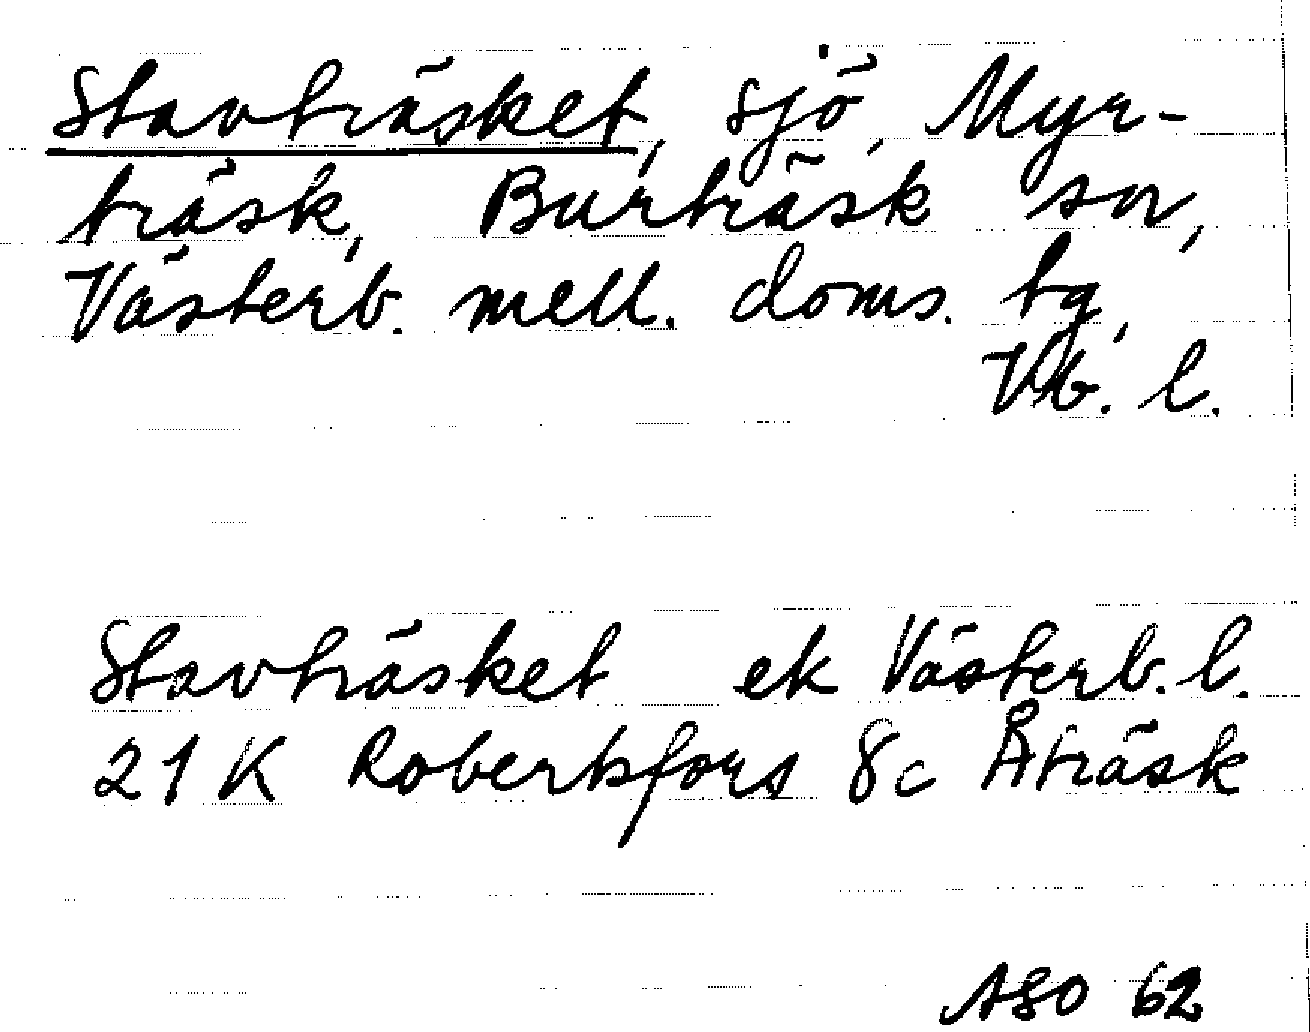 Stavträsket, sjö, Myr-
träsk, Burträsk sn,
Västerb. mell. doms. tg,
Vb. l.
Stavträsket ek Västerb. l.
21 K Robertsfors 8c Åträsk
ASO 62